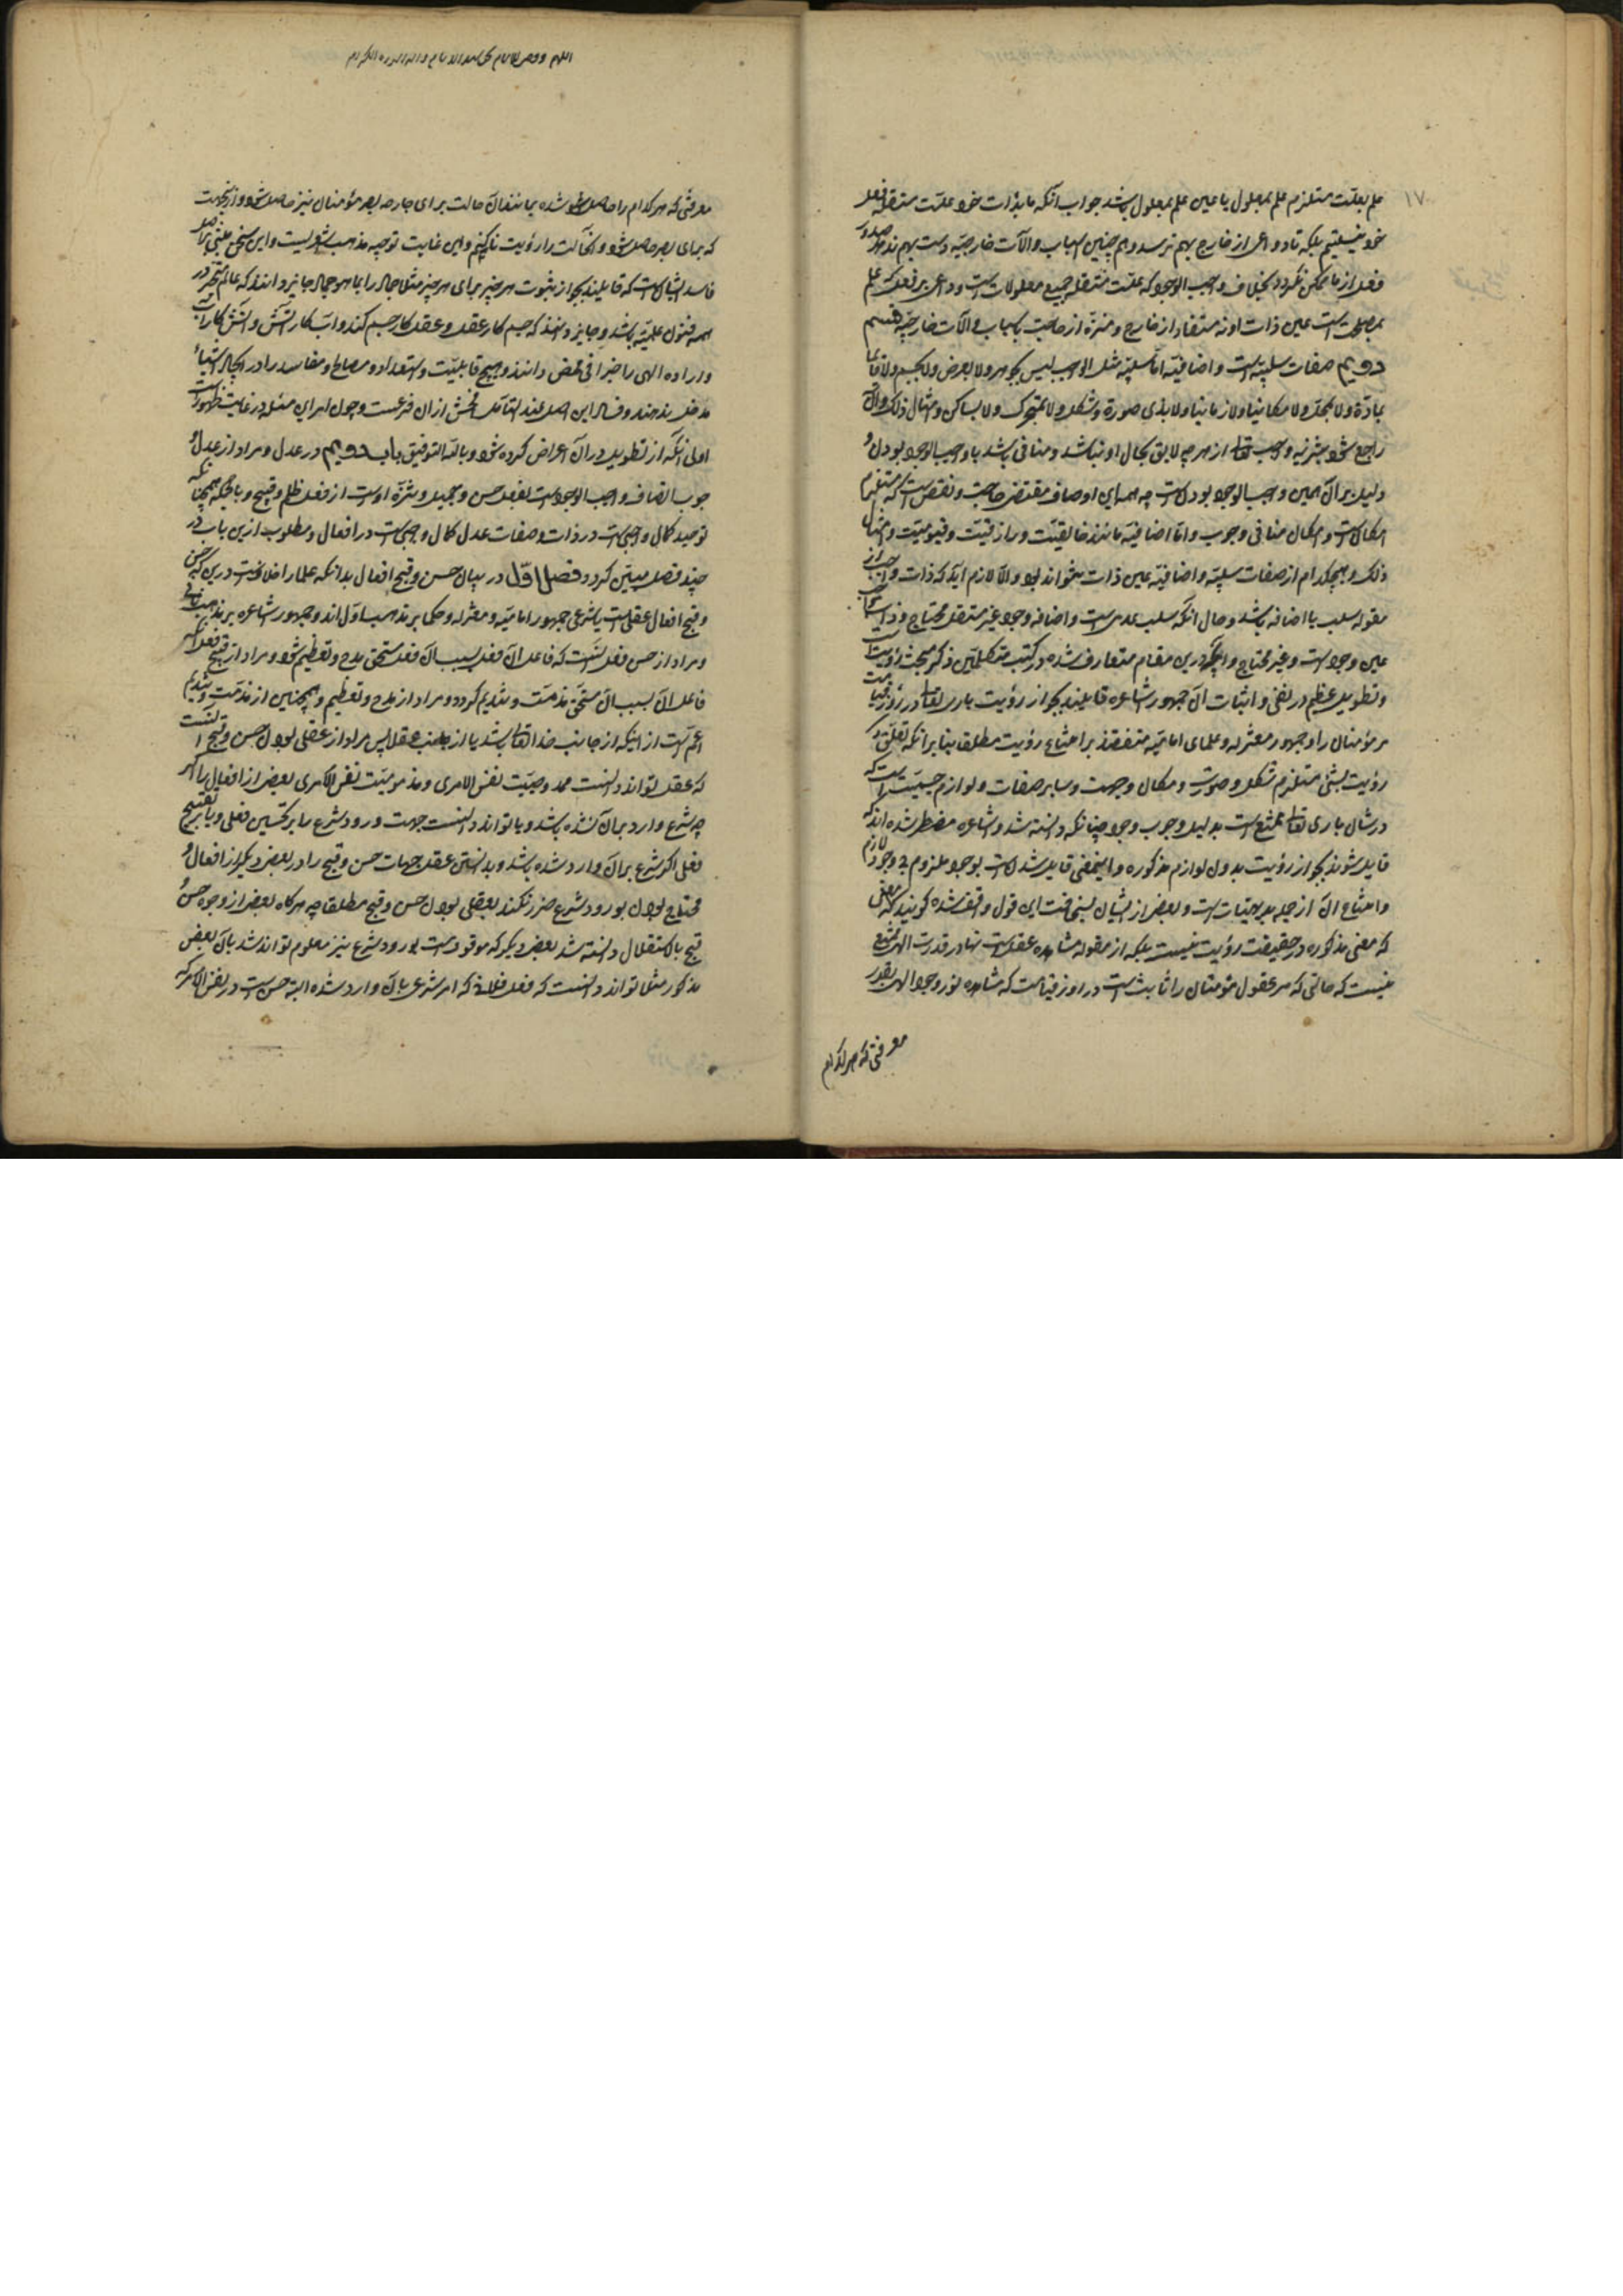 ۱۷
علم بعلت مستلزم علم بمعلول یا عین علم بمعلول باشد جواب آنکه ما بذات خود علت مستقله فعل
خود نیستیم بلکه تا دواعی از خارج بهم نرسد و همچنین اسباب و آلات خارجیه دست بهم ندهد صدور
فعل از ما ممکن نگردد بخلاف واجب الوجود که علت مستقله جمیع معلولات است و داعی بر فعل که علم
بمصلحت است عین ذات اوست نه مستفاد از خارج و منزه از حاجت باسباب و آلات خارجیه قسم
دویم صفات سلبیه است و اضافیه اما سلبیه مثل الواجب لیس بجوهر ولا بعرض ولا بجسم ولا قائما
بمادة ولا بمجرد ولا مکانیا ولا زمانیا ولا بذی صورة وشکل ولا بمتحرک ولا بساکن و امثال ذلک و آن
راجع شود بتنزیه واجب تعالی از هر چه لایق بحال او نباشد و منافی باشد با واجب الوجود بودن و
دلیل بر آن همین واجب الوجود بودن است چه همه این اوصاف مقتضی حاجت و نقص است که مستلزم
امکان است و امکان منافی وجوب و اما اضافیه مانند خالقیت و رازقیت و قیومیت و امثال
ذلک و هیچکدام از صفات سلبیه و اضافیه عین ذات نتواند بود و الا لازم آید که ذات واجب از
مقوله سلب یا اضافه باشد و حال آنکه سلب عدمی است و اضافه وجود غیر مستقل محتاج و ذات واجب
عین وجود است و غیر محتاج و آنچه درین مقام متعارف شده در کتب متکلمین ذکر مبحث رؤیت است
و تطویل عظیم در نفی و اثبات آن جمهور اشاعره قایلند بجواز رؤیت باری تعالی در روز قیامت
مر مؤمنان را و جمهور معتزله و علمای امامیه متفقند بر امتناع رؤیت مطلقا بنا بر آنکه تعلق
رؤیت بشئ مستلزم شکل و صورت و مکان و جهت و سایر صفات و لوازم جسمیت است که
در شان باری تعالی ممتنع است بدلیل وجوب وجود چنانکه دانسته شد و اشاعره مضطر شده اند که
قایل شوند بجواز رؤیت بدون لوازم مذکوره و اینمعنی قایل شدن است بوجود ملزوم بی وجود لازم
و امتناع آن از جمله بدیهیات است و بعضی از ایشان بسخافت این قول واقف شده گویند که
که معنی مذکوره در حقیقت رؤیت نیست بلکه از مقوله مشاهده عقل است نهایت در قدرت الهی ممتنع
نیست که حالتی که مر عقول مؤمنان را ثابت است در روز قیامت که مشاهده نور وجود الهی بقدر
معرفتی که هر کدام
معرفتی که هر کدام را حاصل شده بمانند آن حالت برای جارحه بصر مؤمنان نیز حاصل شود و از جهت
که برای بصر حاصل شود آنحالت را رؤیت نام کنیم و این غایت توجیه مذهب اشعریست و این سخن مبنی بر اصل
فاسد ایشان است که قایلند بجواز ثبوت هر چیز برای هر چیز مثلا جماد را بما هو جماد جایز دانند که عالم متبحر در
همه فنون علمیه باشد و جایز دانند که جسم کار عقل و عقل کار جسم کند و آب کار آتش و آتش کار آب
و اراده الهی را جزافی محض دانند و هیچ قابلیت و استعداد و مصالح و مفاسد را در ایجاد اشیاء
مدخل ندهند و فساد این اصل عند التأمل افحش از آن فرعست و چون امر این مسئله در غایت ظهور است
اولی آنکه از تطویل در آن اعراض کرده شود و بالله التوفیق باب دویم در عدل و مراد از عدل
وجوب اتصاف واجب الوجود است بفعل حسن و جمیل و تنزه اوست از فعل ظلم و قبیح و بالجمله همچنانکه
توحید کمال واجبی است در ذات و صفات عدل کمال واجبی است در افعال و مطلوب ازین باب در
چند فصل مبین گردد فصل اول در بیان حسن و قبح افعال بدانکه علما را خلافست درین که حسن
و قبح افعال عقلی است یا شرعی جمهور امامیه و معتزله و حکما بر مذهب اول اند و جمهور اشاعره بر مذهب ثانی
و مراد از حسن فعل آنست که فاعل آن فعل بسبب آن فعل مستحق مدح و تعظیم شود و مراد از قبح فعل آنکه
فاعل آن بسبب آن مستحق مذمت و تندیم گردد و مراد از مدح و تعظیم و همچنین از مذمت و تندیم
اعم است از اینکه از جانب خدا تعالی باشد یا از جانب عقلا پس مراد از عقلی بودن حسن و قبح آنست
که عقل تواند دانست ممدوحیت نفس الامری و مذمومیت نفس الامری بعضی از افعال را اگر
چه شرع وارد بر آن نشده باشد و یا تواند دانست جهت ورود شرع را بر تحسین فعلی و یا بر تقبیح
فعلی اگر شرع بر آن وارد شده باشد و ندانستن عقل جهات حسن و قبح را در بعضی دیگر از افعال و
محتاج بودن بورود شرع ضرر نکند بعقلی بودن حسن و قبح مطلقا چه هرگاه بعضی از وجوه حسن و
قبح باستقلال دانسته شد بعضی دیگر که موقوفست بورود شرع نیز معلوم تواند شد بآن بعض
مذکور مثلا تواند دانست که فعل فلان که امر شرعی بآن وارد شده البته حسن است در نفس الامر که